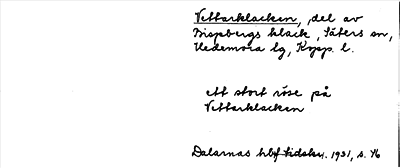 Vettarklacken, del av
Bispbergs klack, Säters sn,
Hedemora lg, Kopp. l.
ett stort röse på
Vettarklacken
Dalarnas hbf tidskr. 1931, s. 76